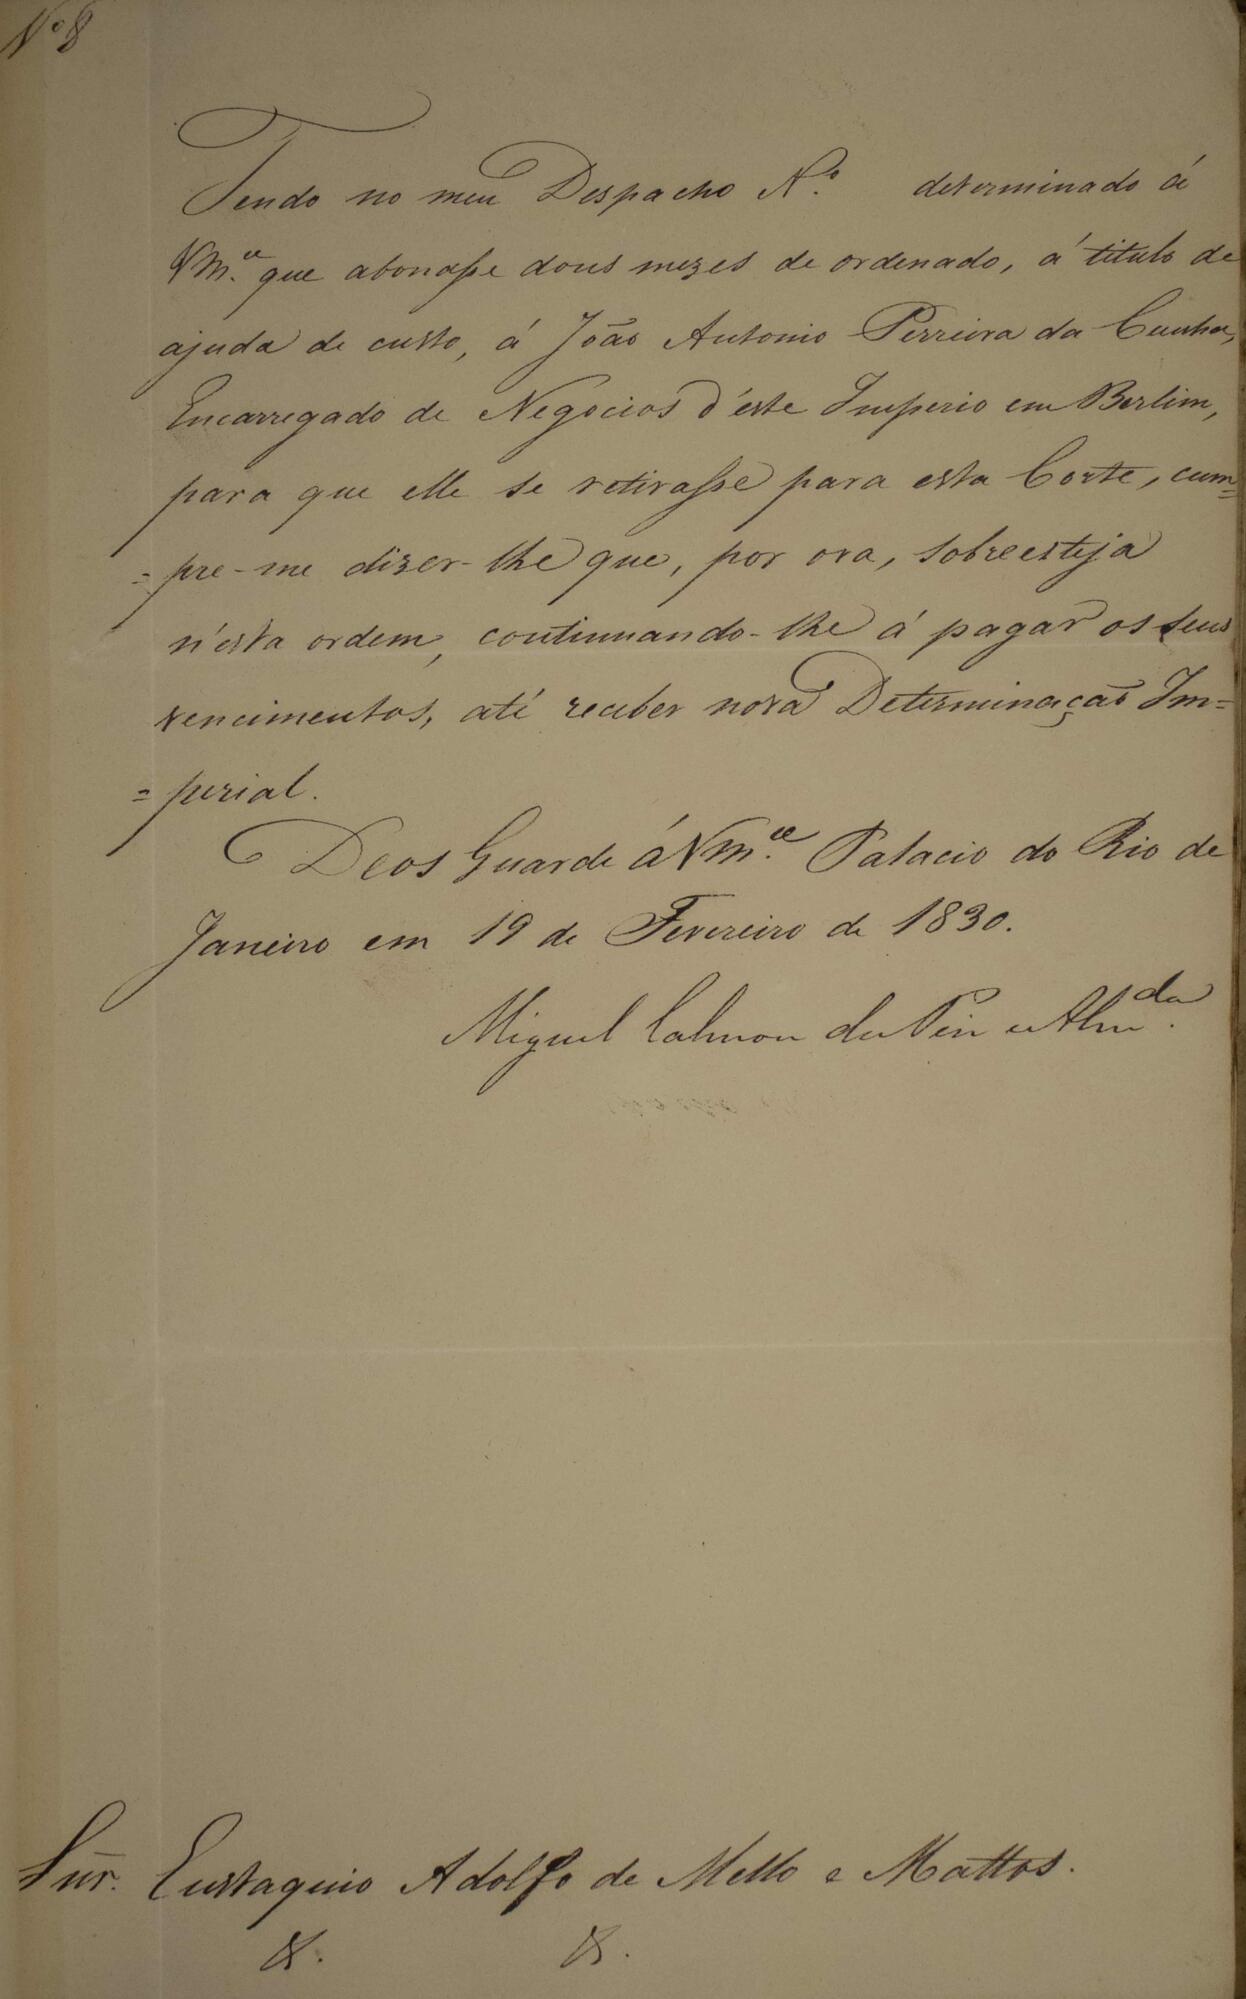 Nº 8
Tendo no meu Despacho N.º determinado á
Vm.ce que abonasse dous mezes de ordenado, á titulo de
ajuda de custo, á João Antonio Perreira da Cunha,
Encarregado de Negocios d'éste Imperio em Berlim,
para que elle se retirasse para esta Corte, cum=
=pre-me dizer-lhe que, por ora, sobreesteja
n'ésta ordem, continuando-lhe á pagar os seus
vencimentos, até receber nova Determinação Im=
=perial.
Deos Guarde á Vm.ce Palacio do Rio de
Janeiro em 19 de Fevereiro de 1830.
Miguel Calmon du Pin e Alm.da
Snr. Eustaquio Adolfo de Mello e Mattos.
&. &.